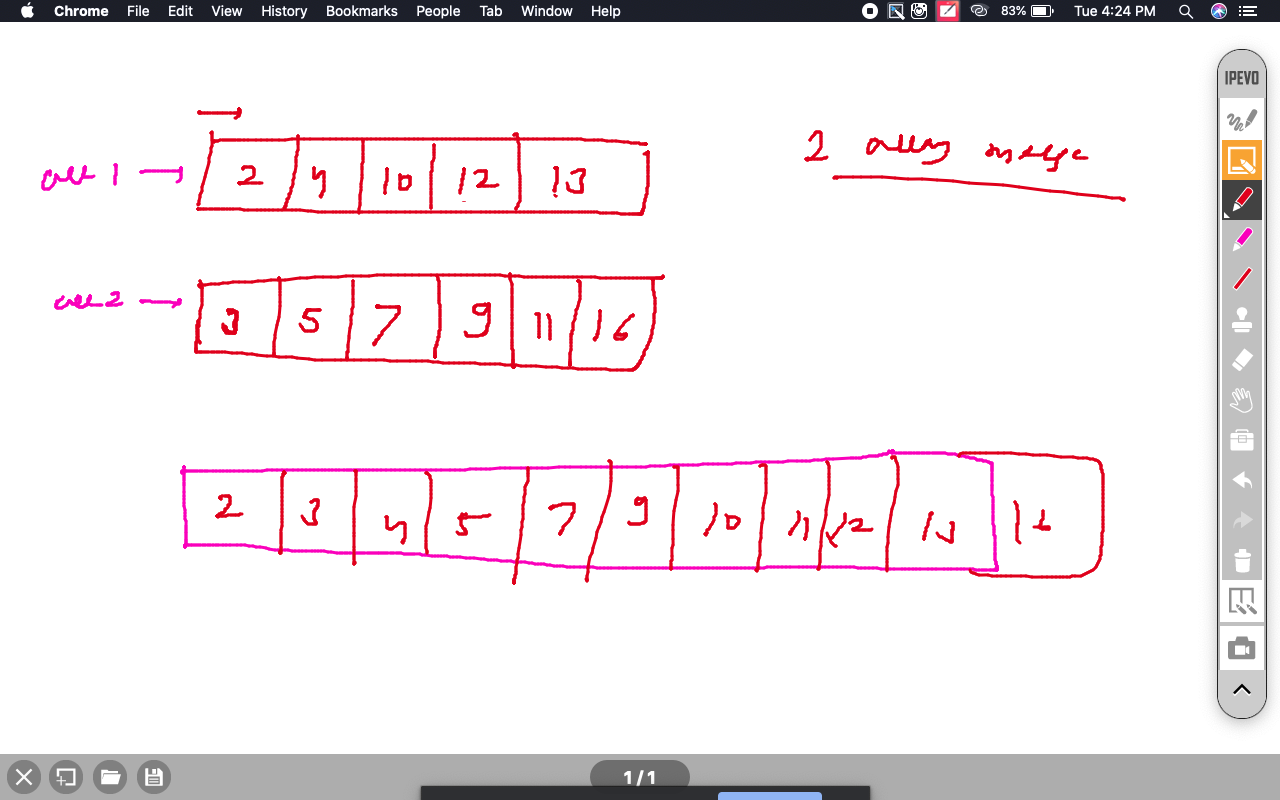 Chrome File Edit View History Bookmarks People Tab Window Help 83% Tue 4:24 PM
IPEVO
2 array merge
arr 1 → 2 4 10 12 13
arr 2 → 3 5 7 9 11 16
2 3 4 5 7 9 10 11 12 13 16
1/1